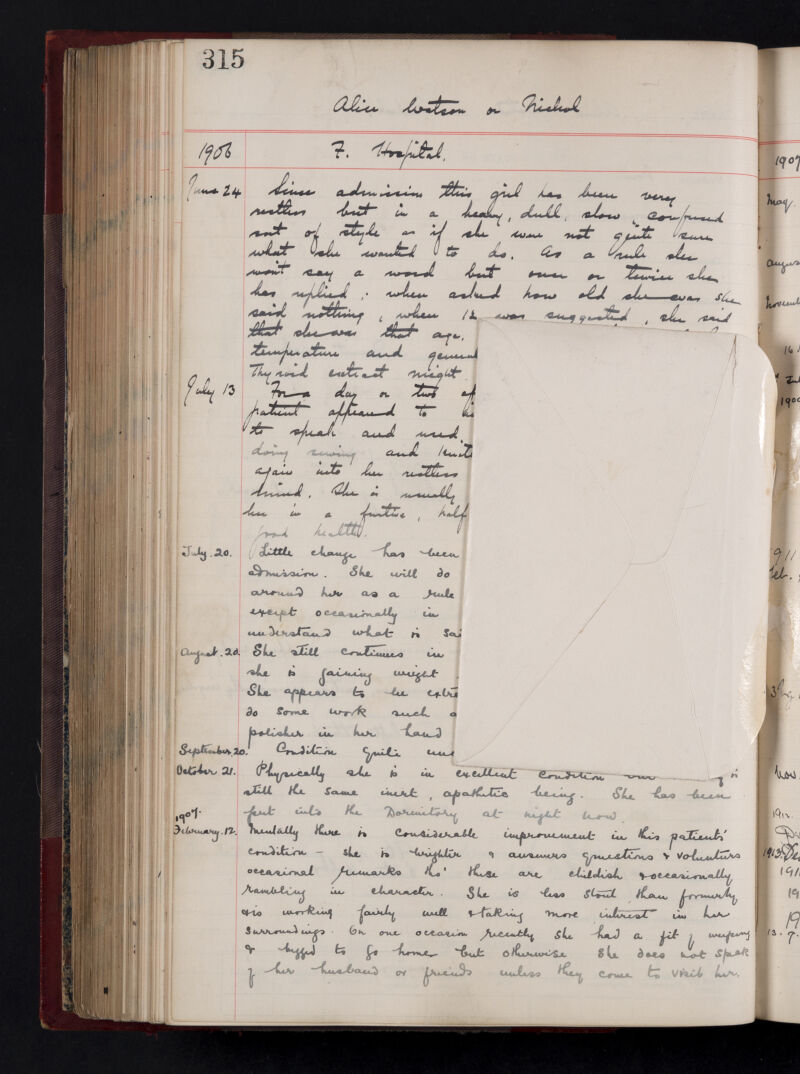 315
Alice Watson or Nichol
1906 F. Hospital.
June 24 Since admission this girl has been very
restless but in a heavy, dull, slow, confused
sort of style as if she were not quite sure
what she wanted to do. As a rule she
won't say a word but once or twice she
has replied; when asked how old she was she
said nothing, when 12 was suggested, she said
that she was that age.
temperature and general
Thyroid extract might
July 13 For a day or two
patient appeared to
to speak and used
doing sewing and
again into her restless
mind. She is usually
her in a furtive, half
good health.
July. 20. Little change has been
admission. She will do
around her as a rule
except occasionally in
understand what is
August. 20. She still continues in
she is gaining weight
She appears to be
do some work such
polisher in her hand
September. 20. Condition quite
October 21. Physically she is in excellent condition
still the same inert, apathetic being. She has been
put into the Dormitory at night now.
1907.
February. 12. Mentally there is considerable improvement in this patients'
condition - she is brighter & answers questions & volunteers
occasional remarks tho' these are childish & occasionally
rambling in character. She is less stout than formerly
& is working fairly well & taking more interest in her
surroundings. On one occasion recently she had a fit of weeping
& begged to go home but otherwise she does not speak
of her husband or friends unless they come to visit her.
1907
May
16
1913